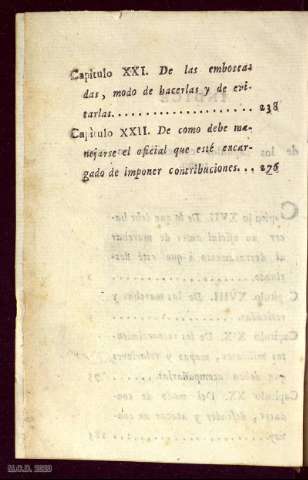 Capitulo XXI. De las embosca-
das, modo de hacerlas y de evi-
tarlas. . . . . . . . . . . . . . . . . . . . 238
Capitulo XXII. De como debe ma-
nejarse el oficial que esté encar-
gado de imponer contribuciones. . . 276
M.C.D. 2020